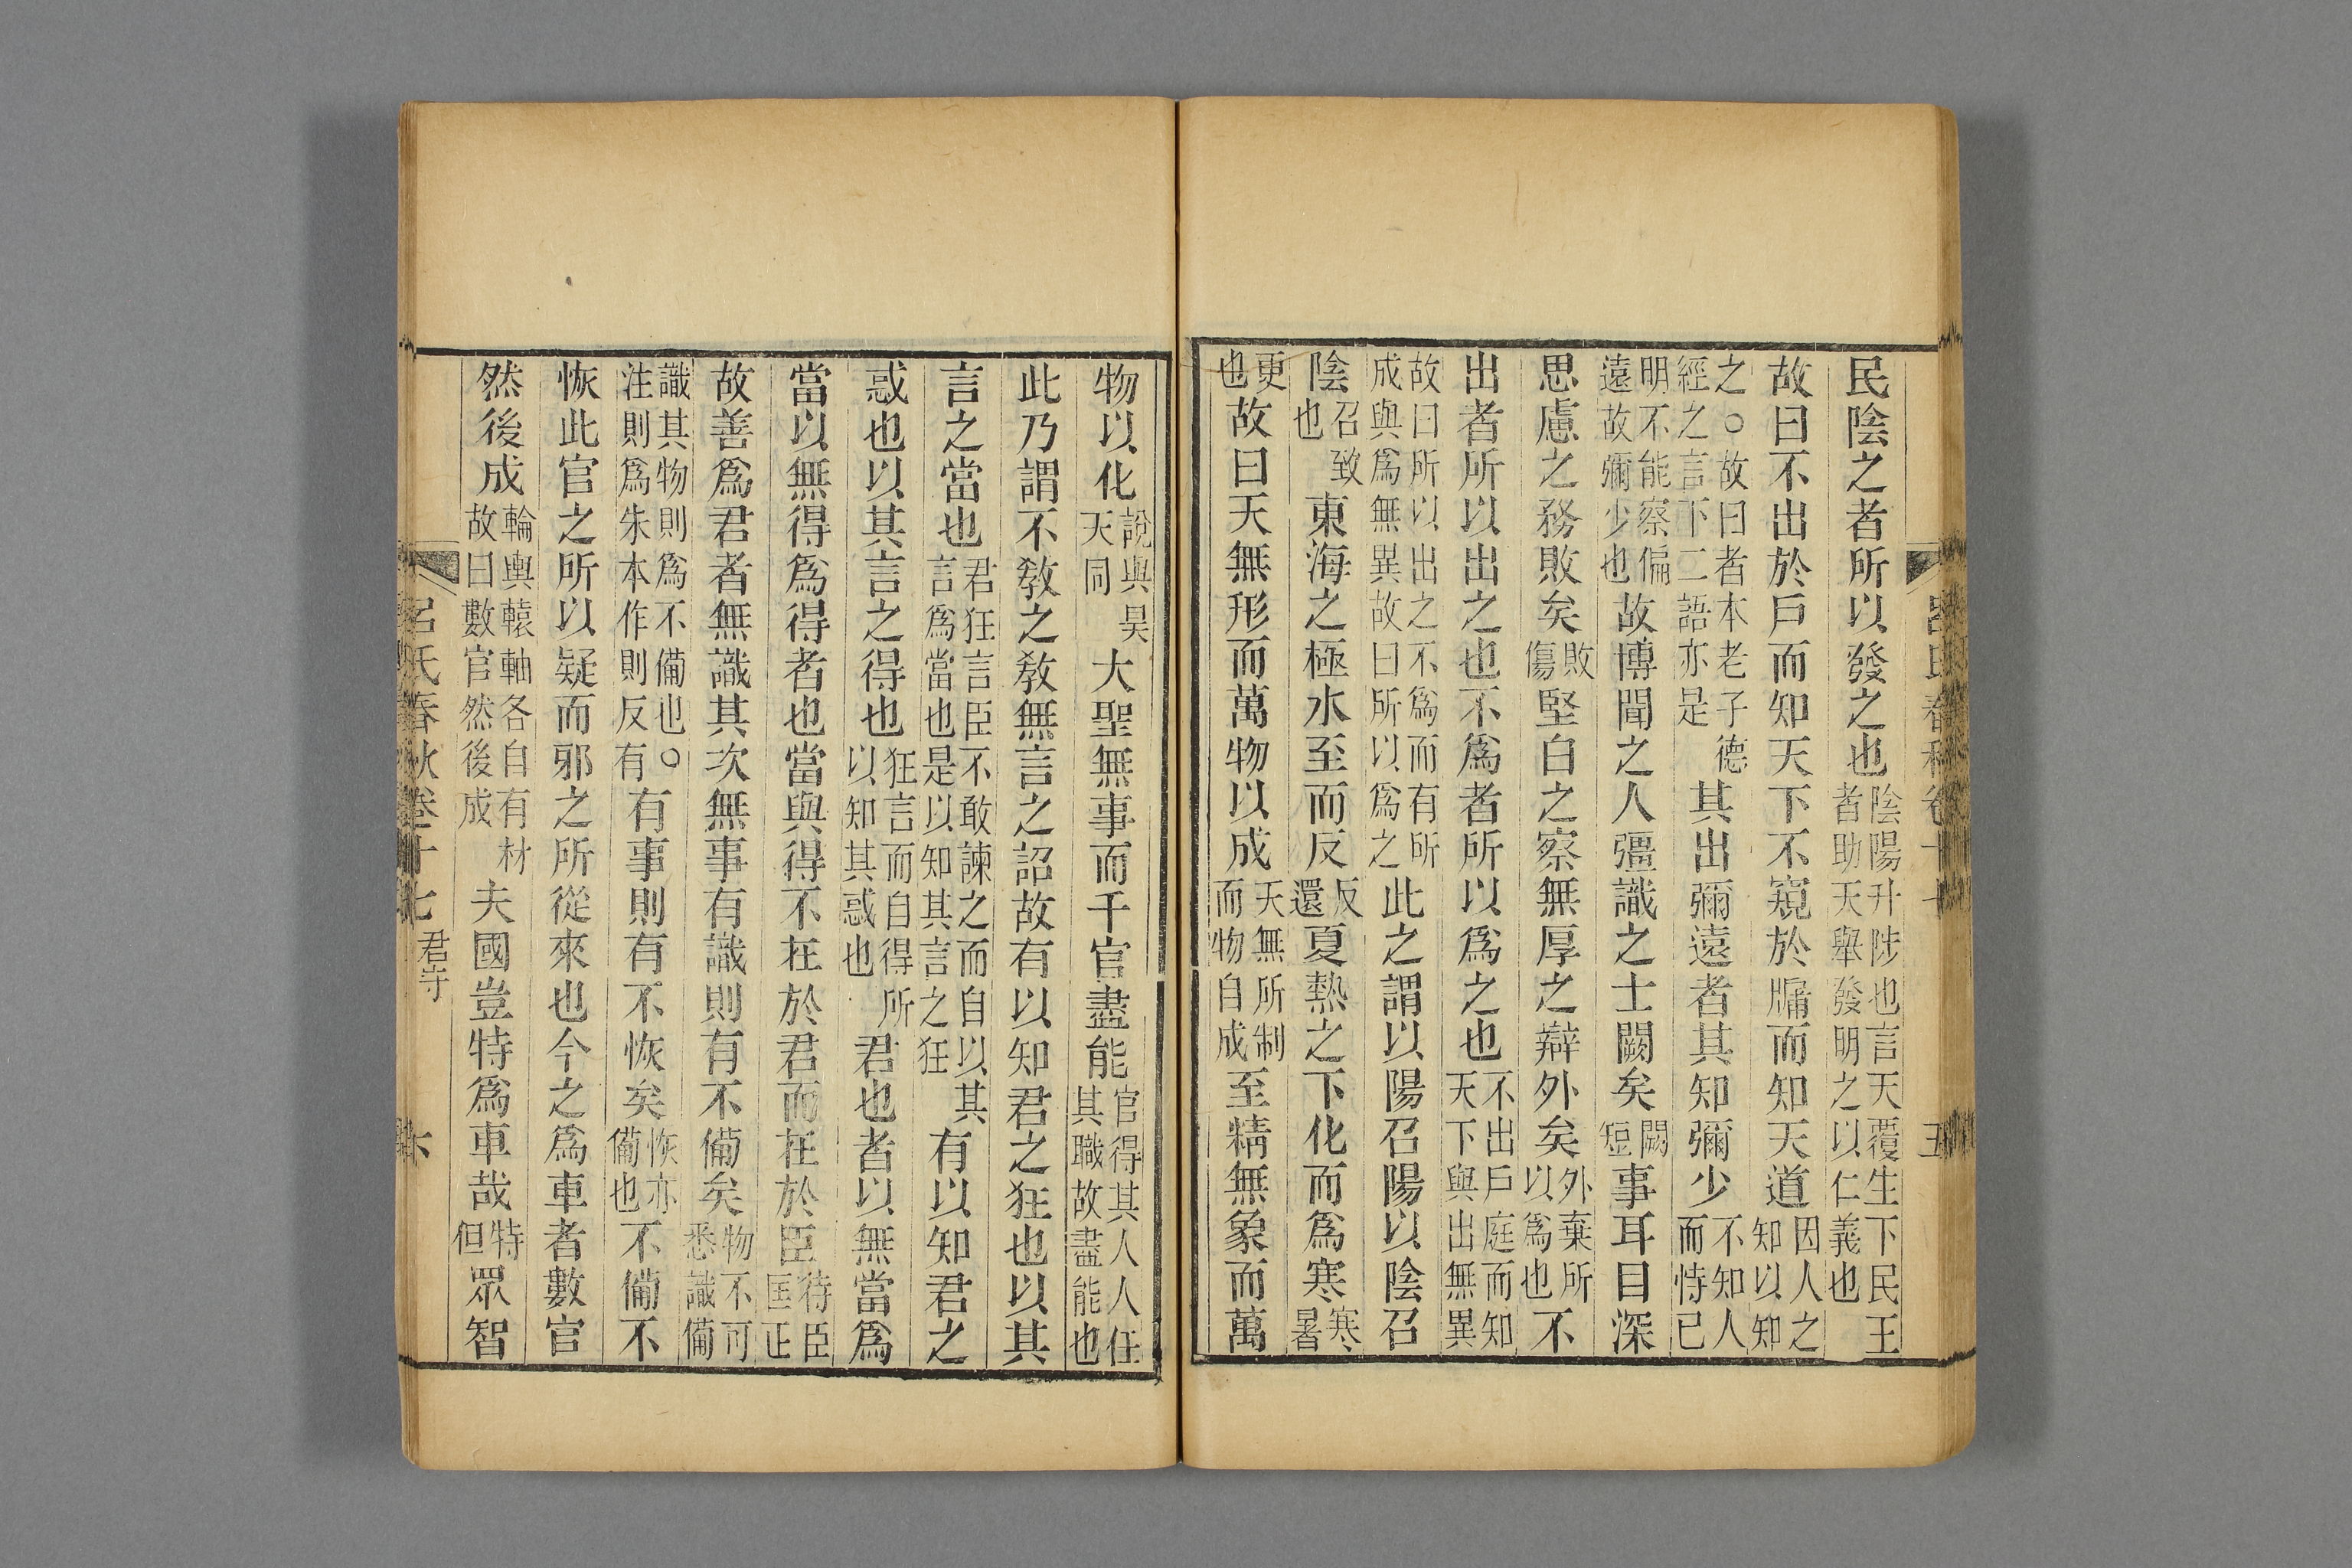 呂氏春秋卷十七 五
民陰之者所以發之也陰陽升陟也言天覆生下民王者助天舉發明之以仁義也
故曰不出於戶而知天下不窺於牖而知天道因人之知以知
之○故曰者本老子德經之言下二語亦是其出彌遠者其知彌少不知人而恃己
明不能察偏遠故彌少也故博聞之人彊識之士闕矣闕短事耳目深
思慮之務敗矣敗傷堅白之察無厚之辯外矣外棄所以爲也不
出者所以出之也不爲者所以爲之也不出戶庭而知天下與出無異
故曰所以出之不爲而有所成與爲無異故曰所以爲之此之謂以陽召陽以陰召
陰召致也東海之極水至而反反還夏熱之下化而爲寒寒暑
更也故曰天無形而萬物以成天無所制而物自成至精無象而萬
物以化說與昊天同大聖無事而千官盡能官得其人人任其職故盡能也
此乃謂不敎之敎無言之詔故有以知君之狂也以其
言之當也君狂言臣不敢諫之而自以其言爲當也是以知其言之狂有以知君之
惑也以其言之得也狂言而自得所以知其惑也君也者以無當爲
當以無得爲得者也當與得不在於君而在於臣待臣匡正
故善爲君者無識其次無事有識則有不備矣物不可悉識備
識其物則爲不備也○注則爲朱本作則反有有事則有不恢矣恢亦備也不備不
恢此官之所以疑而邪之所從來也今之爲車者數官
然後成輪輿轅軸各自有材故曰數官然後成夫國豈特爲車哉特但眾智
呂氏春秋卷十七 君守 六